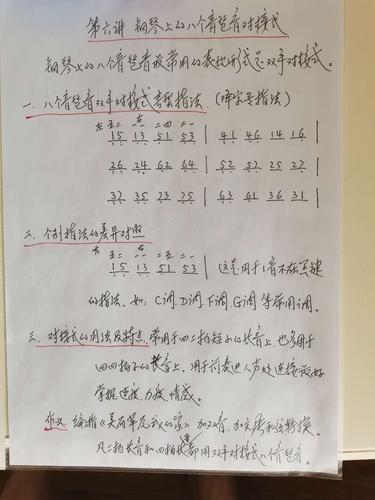 第六讲 钢琴上的八个音琶音对接式
钢琴上的八个音琶音最常用的表现形式是双手对接式。
一、八个音琶音双手对接式 指法。(哆字号指法)
左 五二 右一二 二四 二一
15 13 51 53 | 41 46 14 16 |
26 24 62 64 | 52 57 25 27 |
37 35 73 75 | 63 61 36 31 |
二、个别指法的差异对照
左 五二 右一二 二五 二一
15 13 51 53 | 这是用于1音不在黑键
的指法。如:C调、D调、F调、G调等常用调。
三、对接式的用法及特点:常用于四二拍短小的长音上,也多用于
四四拍子的长音上。用于前奏进入声处连接最好
掌握速度、力度、情感。
作业:编指《美丽草原我的家》加双音、加
凡二拍长音和四拍长音都用双手对接式八个音琶音。